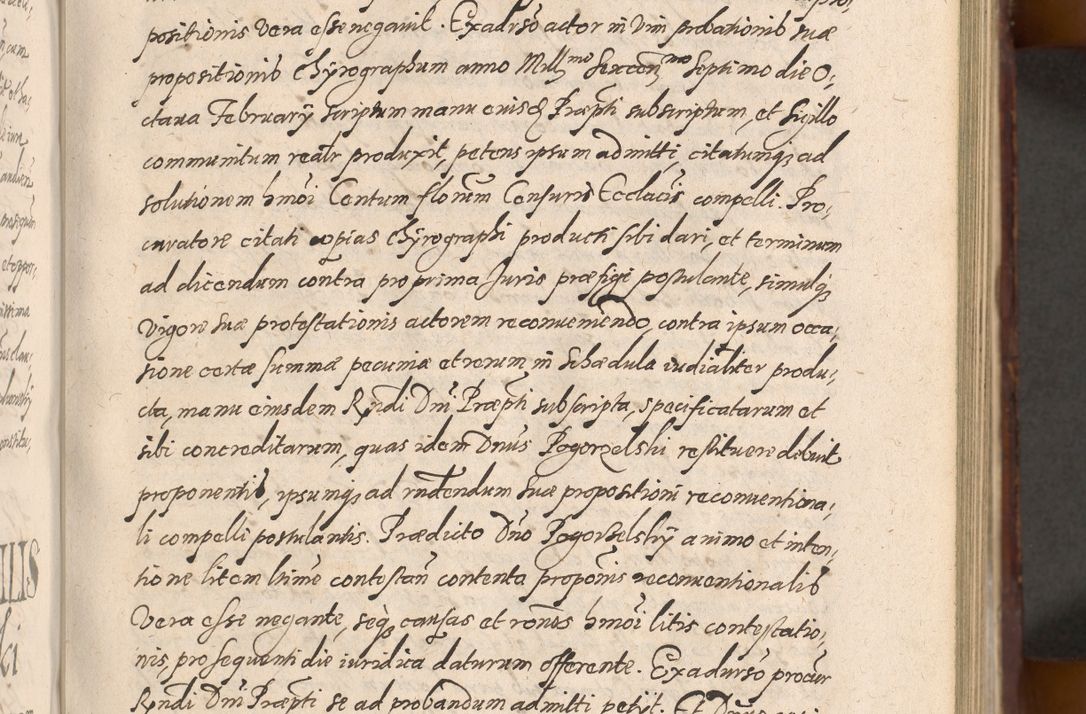 positionis vera esse negavit. Ex adrso actor in vim probationis suæ
propositionis Chÿrographum anno Mill̃mo Sexcen̄mo Septimo die O,
ctaua Februarÿ scriptum manu eiusd Præpti subscriptum, et sigillo
communitum realr produxit, petens ipsum admitti, citatumq; ad
solutionem hmoi Centum florum Censuris Ecclacis compelli. Pro,
curatore citati copias Chÿrographi producti sibi dari, et terminum
ad dicendum contra pro prima Juris præfigi postulante, simulq;
vigore suæ protestationis actorem reconueniendo, contra ipsum occa,
sione certæ summæ pecuniæ et rerum in schædula iudialiter produ,
cta, manu eiusdem Rndi Dni Præpti subscripta, specificatarum et
sibi concreditarum, quas idem Dnus Pogorzelski restituere debuit
proponentis, ipsumq; ad rndendum suæ propositioni reconuentiona,
li compelli postulantis. Prædicto Dno Pogorselskÿ animo et inten,
tione litem ltime contestan contenta propoñis reconuentionalis
Vera esse negante, seq; causas et rones hmoi litis contestatio,
nis, prosequenti die iuridica daturum offerente. Ex aduerso procur
Rndi Dni Præpti se ad probandum admitti petÿt. Et